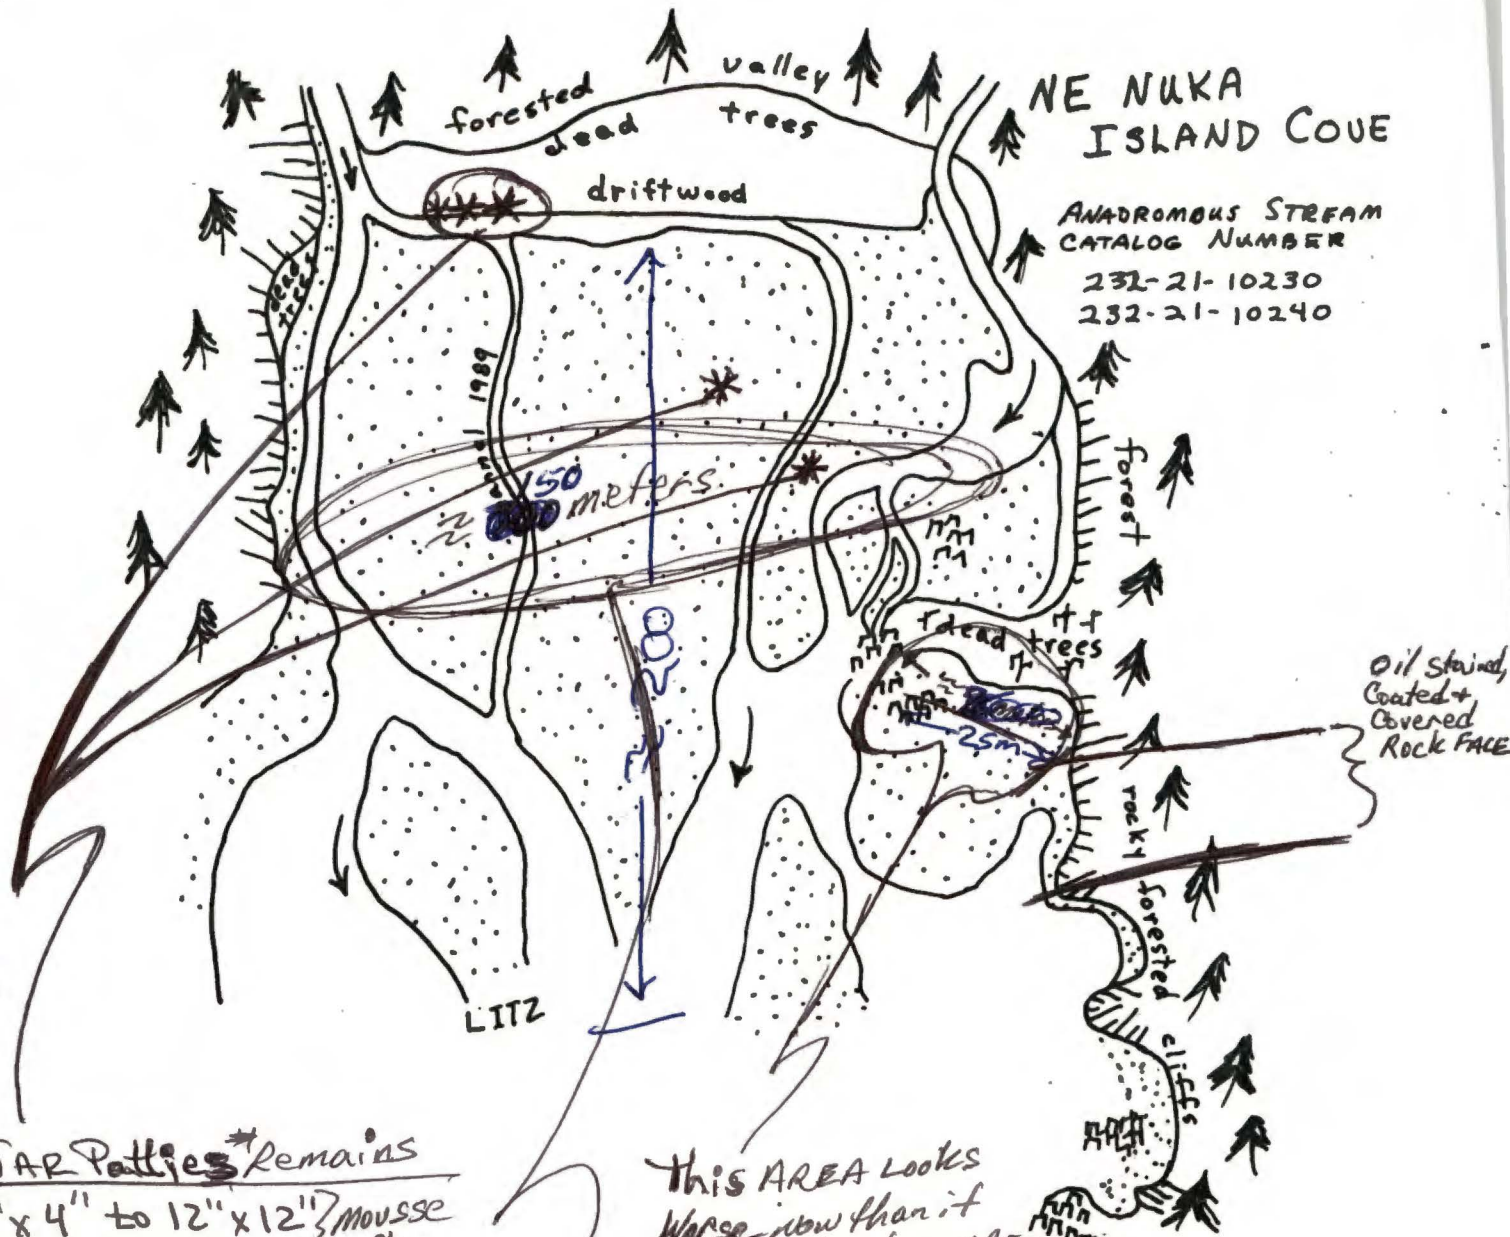 NE NUKA
ISLAND COVE
ANADROMOUS STREAM
CATALOG NUMBER
232-21-10230
232-21-10240
forested valley
dead trees
driftwood
dead trees
1989
≈ 150 meters
≈ 200
forest
dead trees
25m
Oil stained,
Coated +
Covered
Rock FACE
rocky forested cliffs
LITZ
TAR Patties * Remains
x 4" to 12" x 12" } mousse
This AREA Looks
Worse now than it